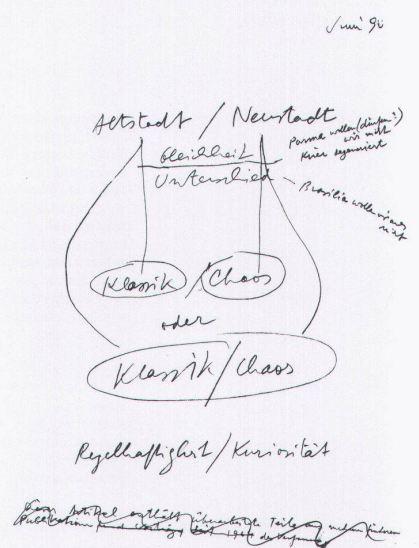 Juni 90
Altstadt / Neustadt
Gleichheit
Unterschied
Parma wollen (dürfen?)
wir nicht
Krier
Brasilia wollen
nicht
Klassik / Chaos
oder
Klassik / Chaos
Regelhaftigkeit / Kuriosität
Dieser Artikel enthält überarbeitete Teile
Publikation